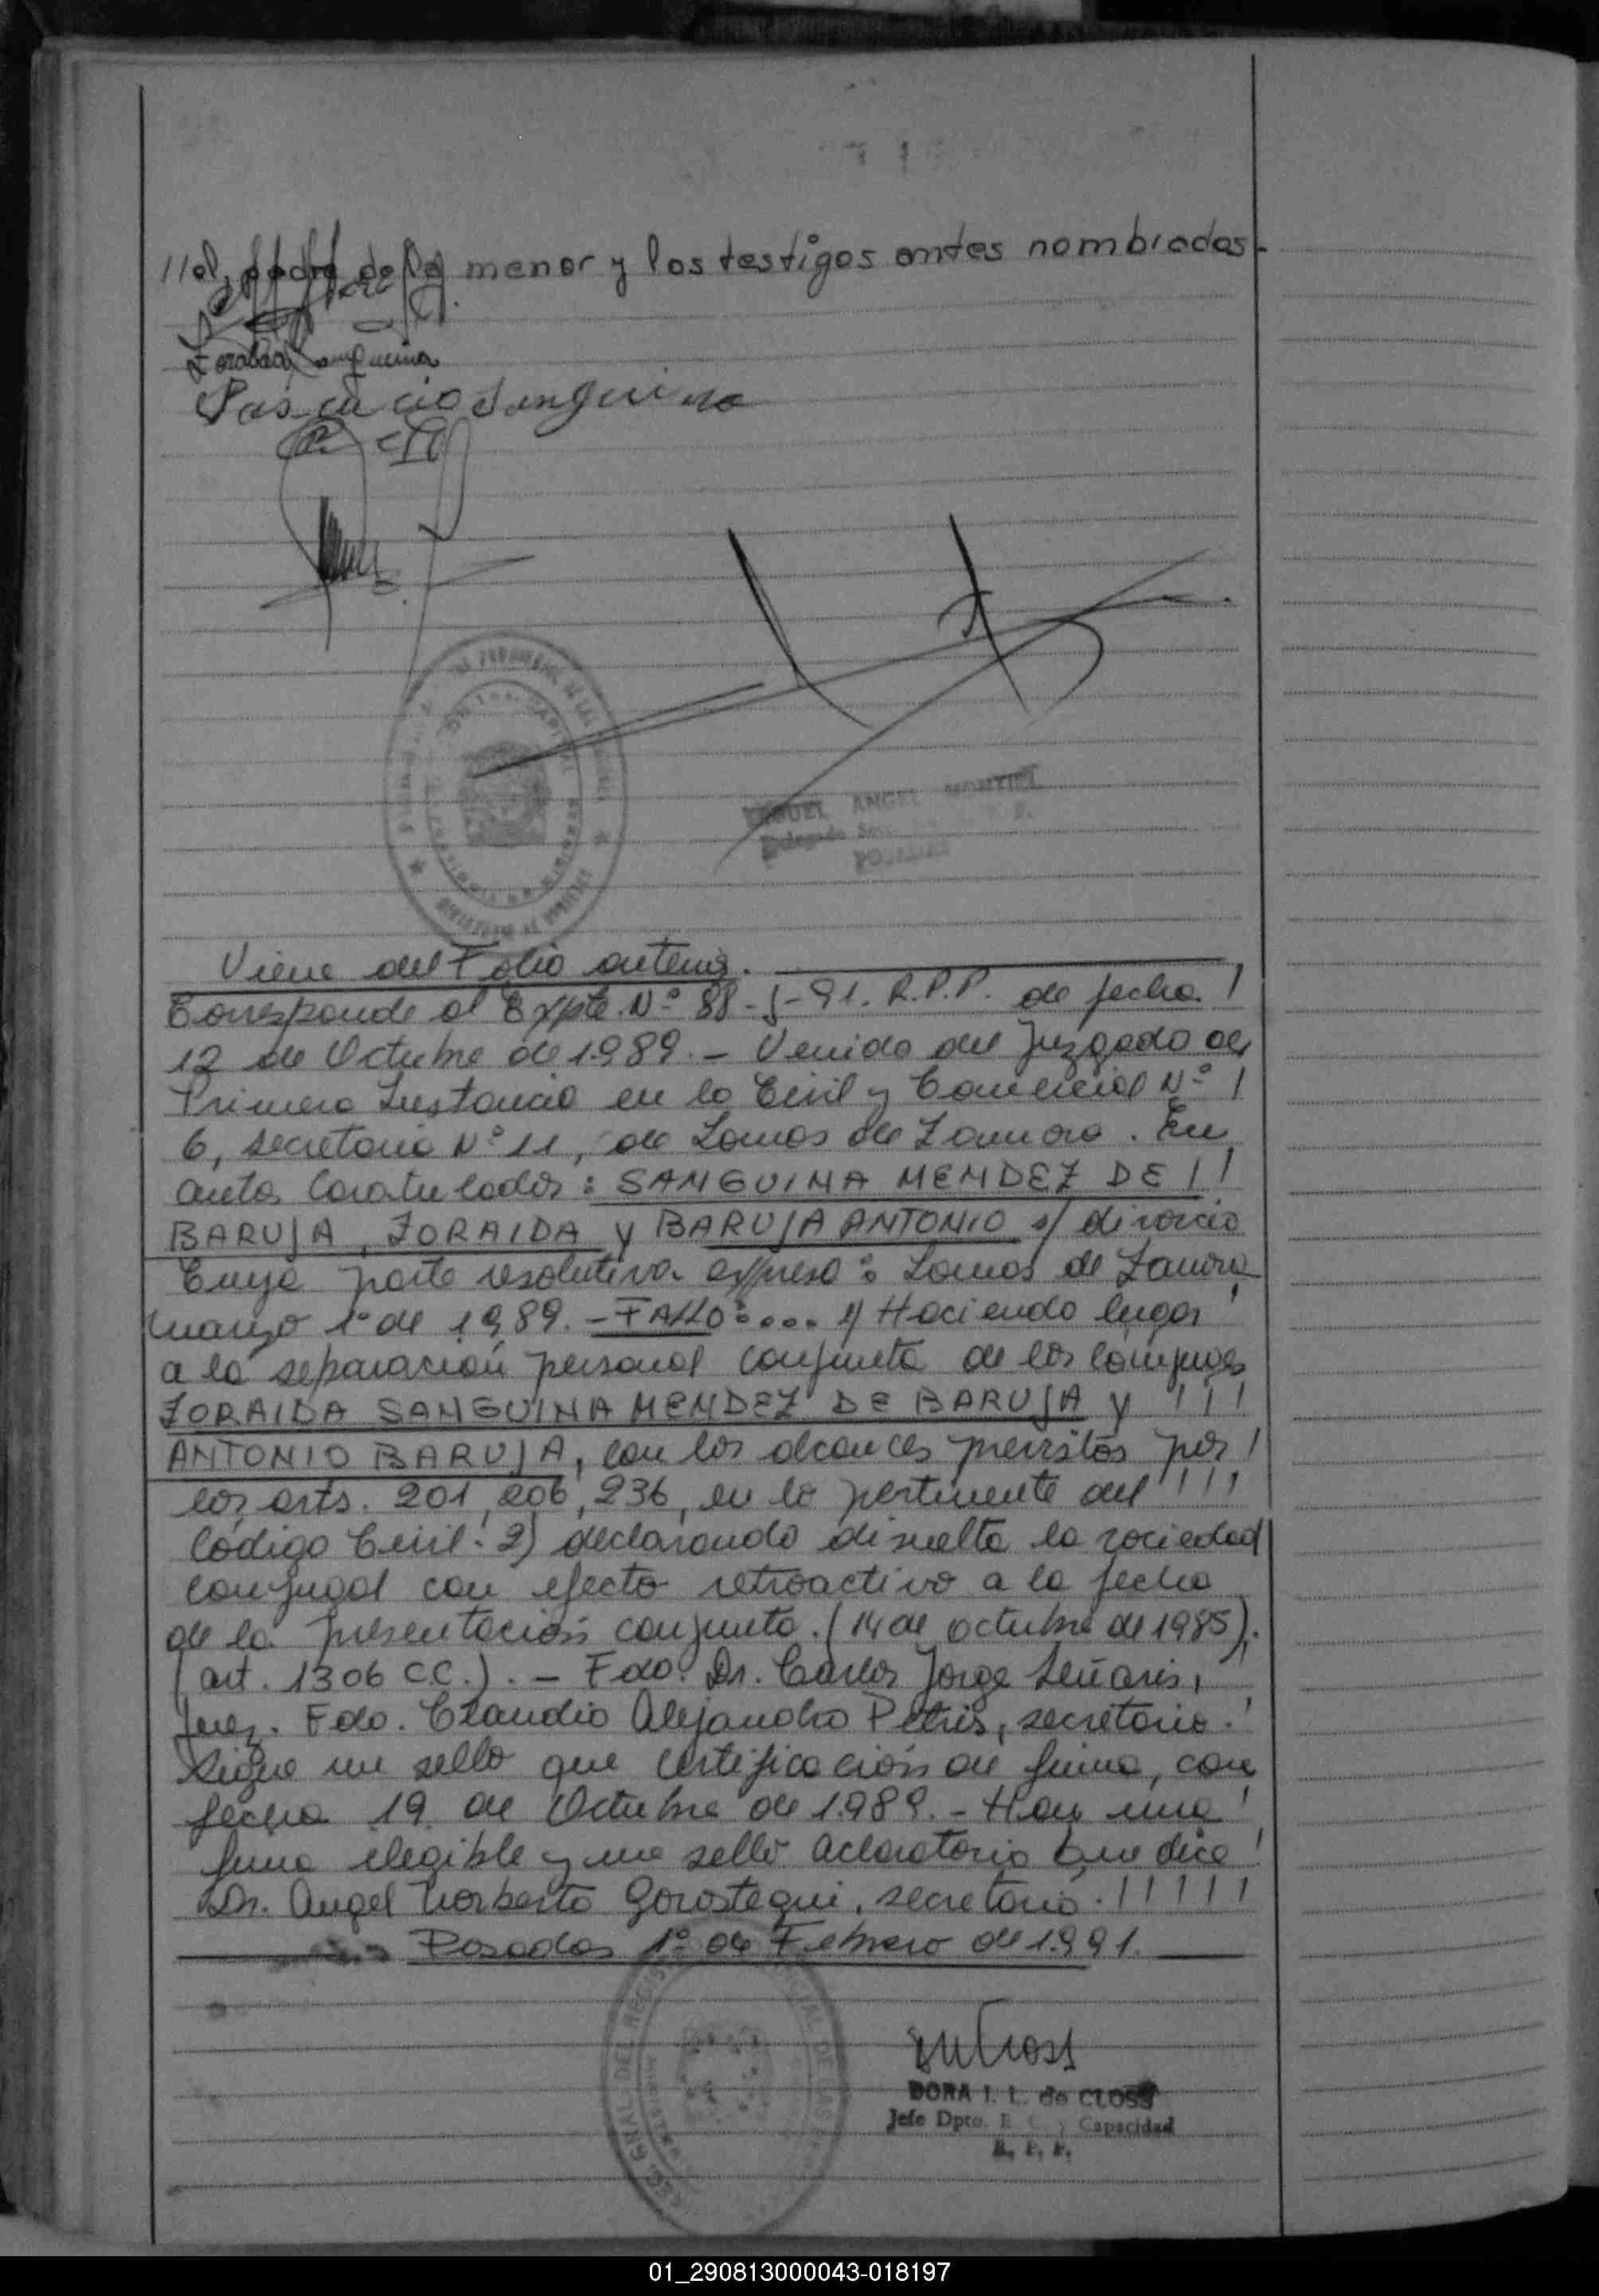 //el padre de la menor y los testigos antes nombrados-
Zoraida Sanguina
Pascucio Sanguina
MIGUEL ANGEL MONTIEL
Delegado
POSADAS
Viene del Folio anterior.
Corresponde al Expte. Nº 88-J-91. R.P.P. de fecha !
12 de Octubre de 1.989.- Venido del Juzgado de
Primera Instancia en lo Civil y Comercial Nº !
6, secretaria Nº 11, de Lomas de Zamora. En
autos Caratulados: SANGUINA MENDEZ DE ! !
BARUJA, ZORAIDA y BARUJA ANTONIO s/ divorcio
Cuya parte resolutiva expresa: Lomas de Zamora
marzo 1º de 1.989.- FALLO:.... 1) Haciendo lugar !
a la separación personal conjunta de los cónyuges
ZORAIDA SANGUINA MENDEZ DE BARUJA y ! ! !
ANTONIO BARUJA, con los alcances previstos por !
los arts. 201, 206, 236, en lo pertinente del ! ! !
Código Civil. 2) declarando disuelta la sociedad
conyugal con efecto retroactivo a la fecha
de la presentación conjunta. (14 de octubre de 1985).
(art. 1306 C.C.).- Fdo. Dr. Carlos Jorge
Juez. Fdo. Claudio Alejandro Petris, secretario. !
Sigue un sello que certificación de firma, con
fecha 19 de Octubre de 1.989.- Hay una !
firma ilegible y un sello aclaratorio que dice !
Dr. Angel Norberto Gorostegui, secretario. ! ! ! ! !
Posadas 1º de Febrero de 1.991.
DORA I. L. de CLOSS
Jefe Dpto. E. C. y Capacidad
R. P. P.
01_290813000043-018197